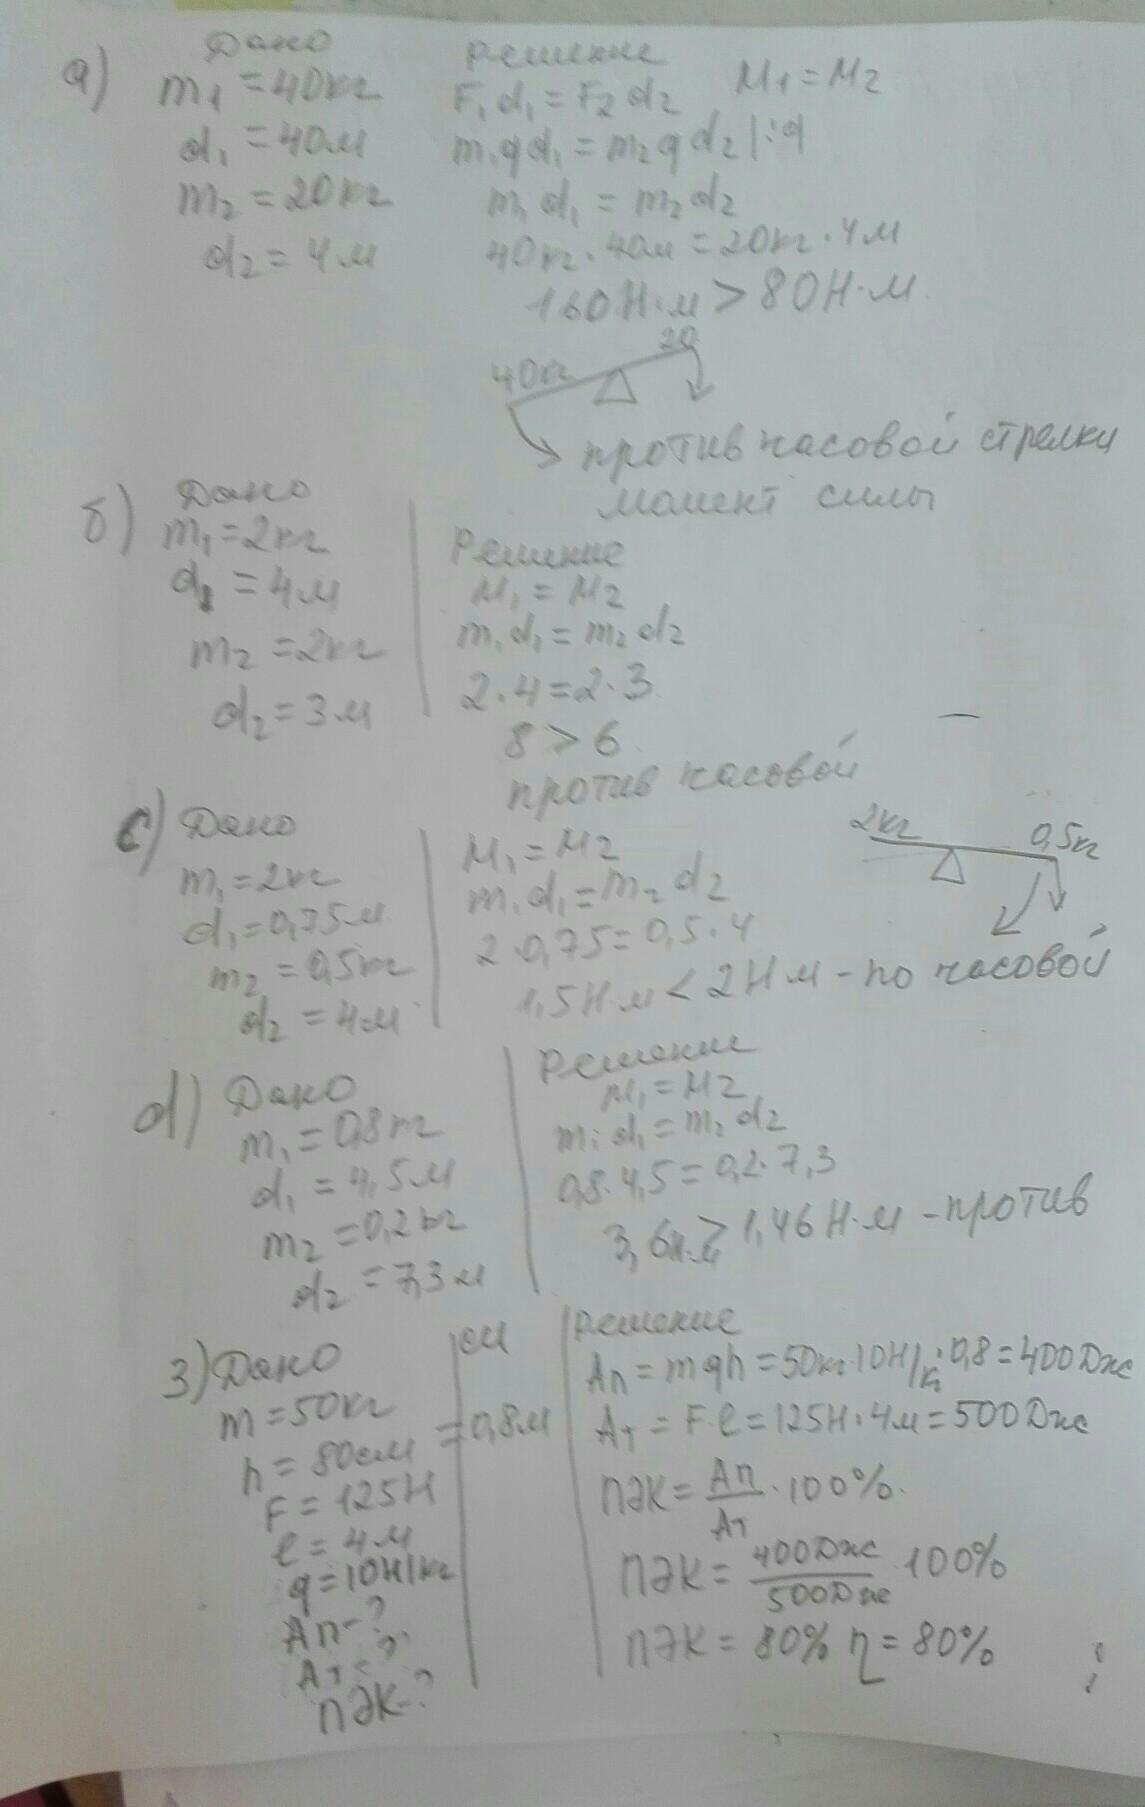 а) Дано
m1 = 40кг
d1 = 40м
m2 = 20кг
d2 = 4м
решение
F1 d1 = F2 d2 M1 = M2
m1 g d1 = m2 g d2 |:g
m1 d1 = m2 d2
40кг · 40м = 20кг · 4м
160Н·м > 80Н·м.
40кг 20
против часовой стрелки
момент силы
б) Дано
m1 = 2кг
d1 = 4м
m2 = 2кг
d2 = 3м
Решение
M1 = M2
m1 d1 = m2 d2
2·4 = 2·3
8 > 6.
против часовой
с) Дано
m1 = 2кг
d1 = 0,75м
m2 = 0,5кг
d2 = 4м
M1 = M2
m1 d1 = m2 d2
2·0,75 = 0,5·4
1,5Н м < 2Н м - по часовой
2кг 0,5кг
d) Дано
m1 = 0,8кг
d1 = 4,5м
m2 = 0,2кг
d2 = 7,3м
Решение
M1 = M2
m1 d1 = m2 d2
0,8·4,5 = 0,2·7,3
3,6н.м > 1,46Н·м - против
3) Дано
m = 50кг
h = 80см = 0,8м
F = 125Н
l = 4м
g = 10Н/кг
Ап - ?
Ат - ?
ПӘК - ?
си
решение
Ап = mgh = 50кг·10Н/кг·0,8 = 400Дж
Ат = F·l = 125Н·4м = 500Дж
ПӘК = Ап/Ат · 100%.
ПӘК = 400Дж/500Дж 100%
ПӘК = 80% η = 80%